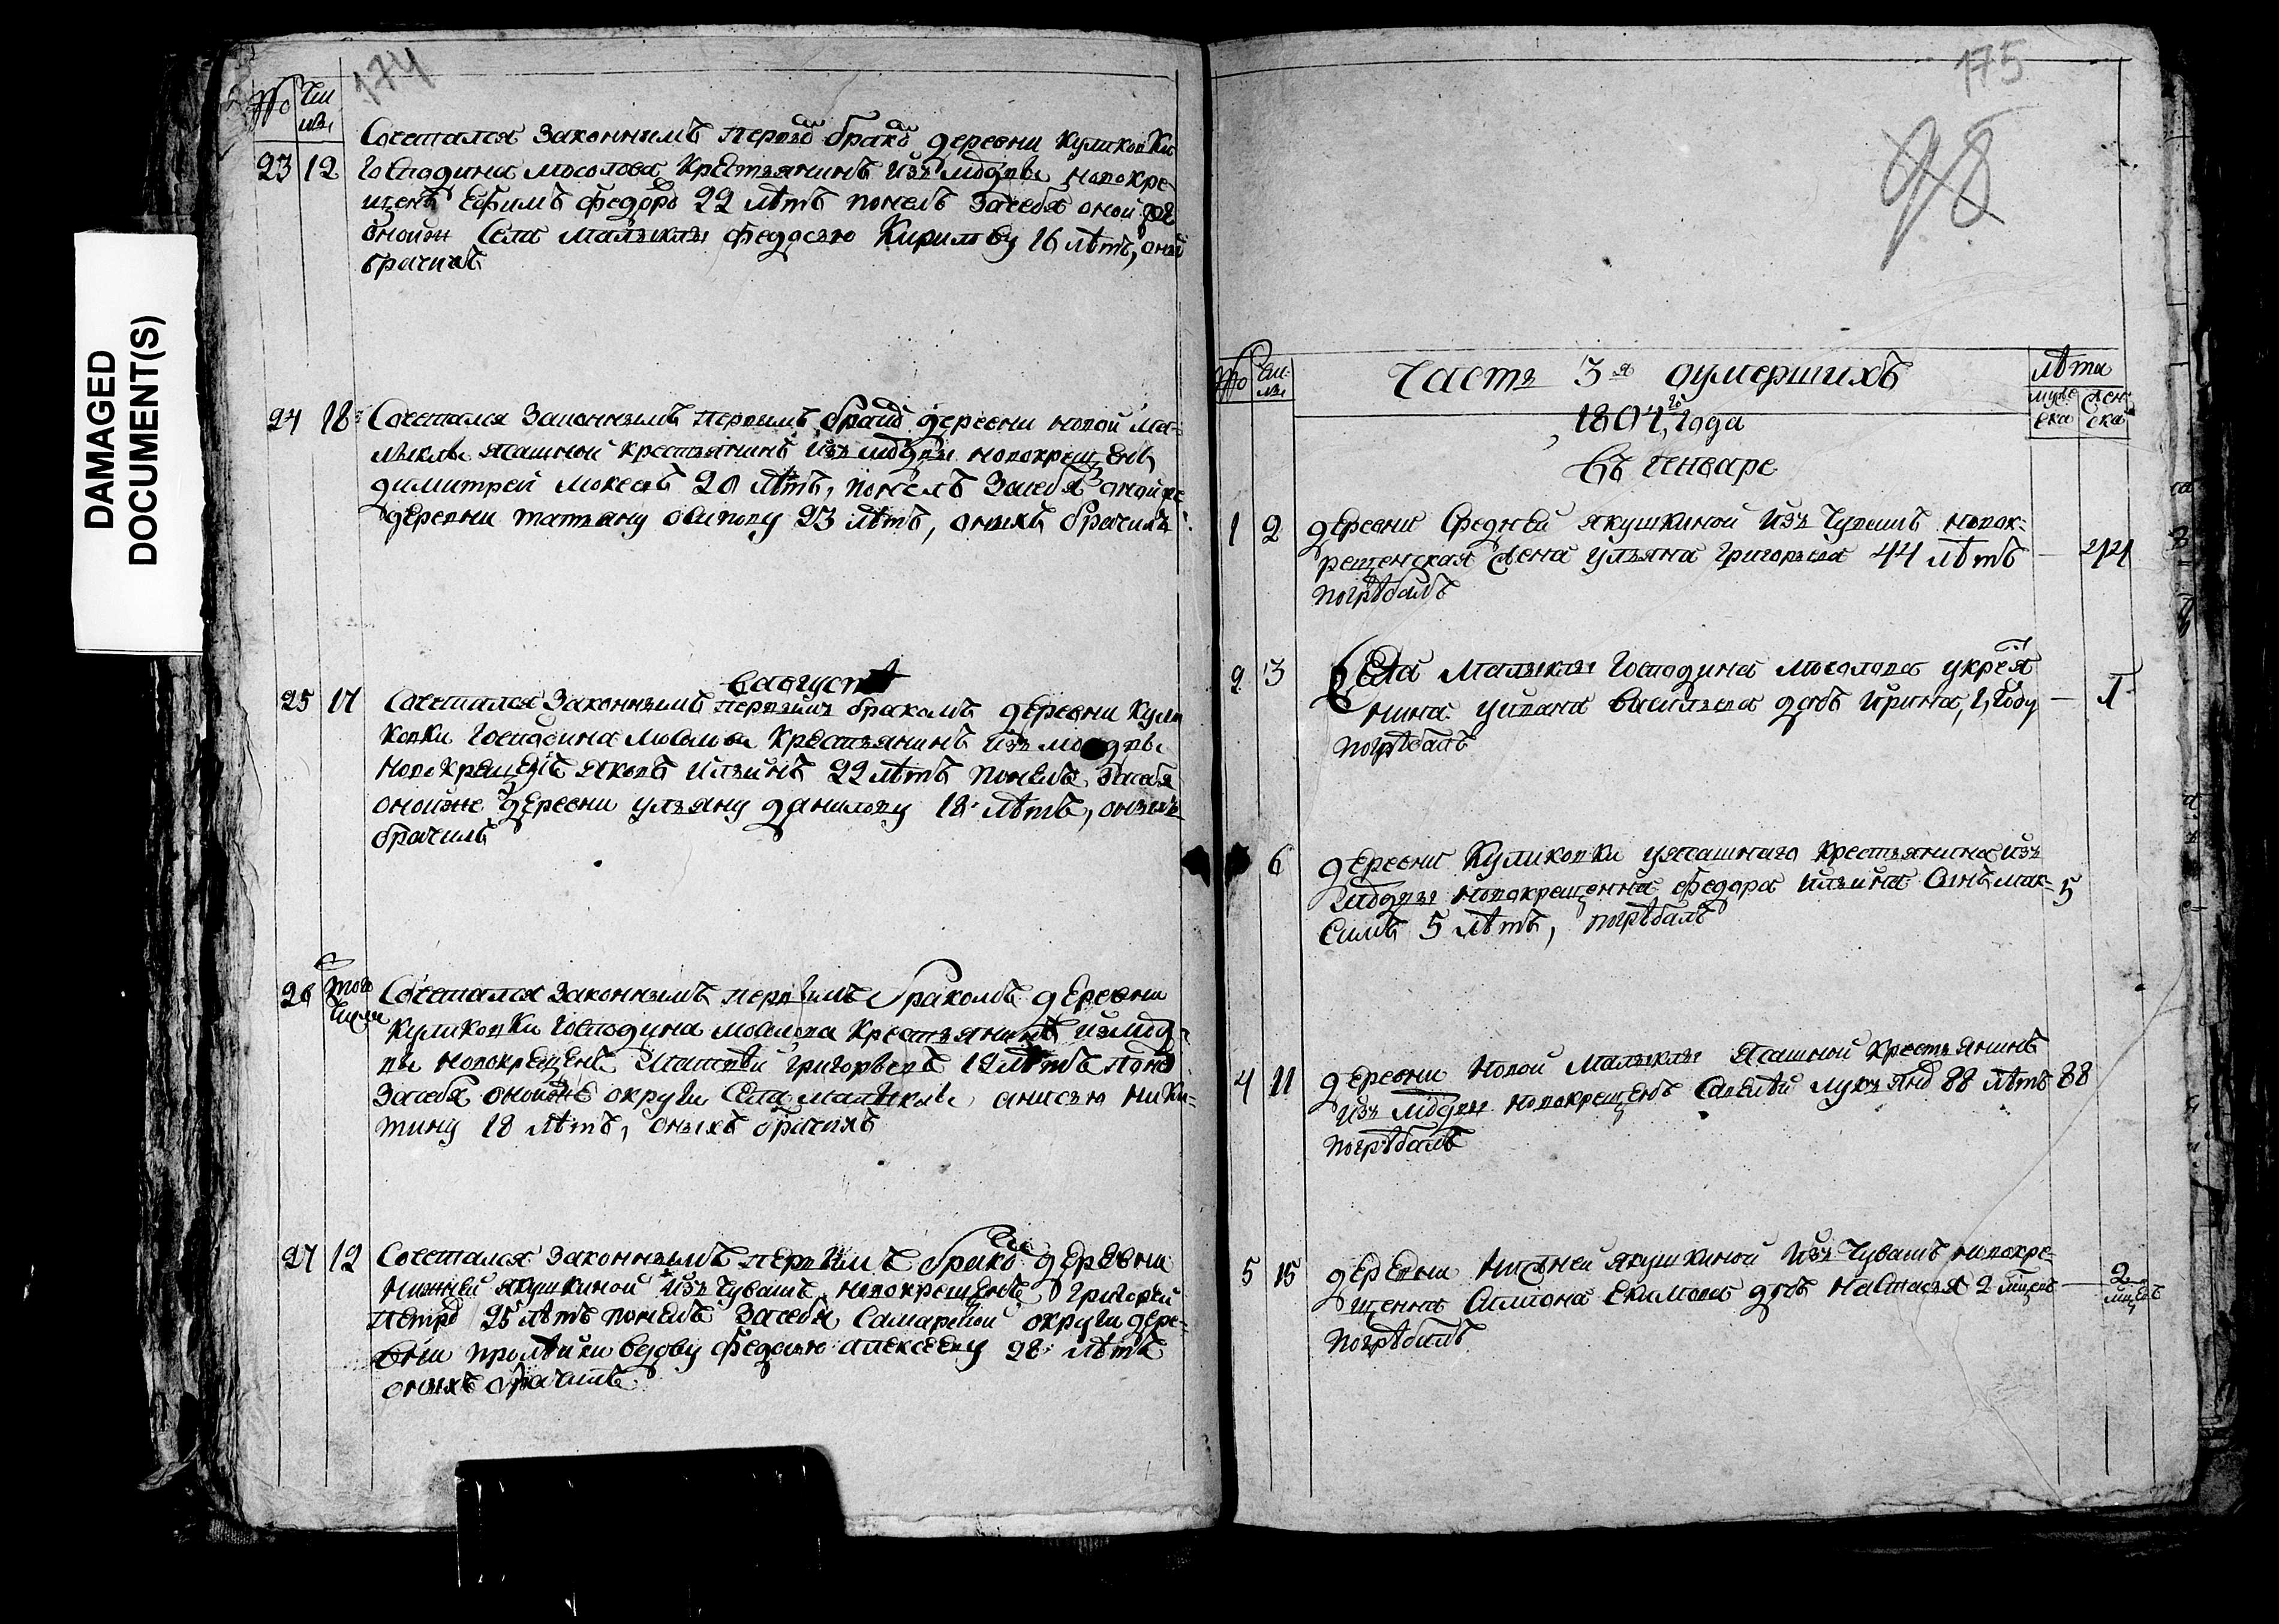 DAMAGED
DOCUMENT(S)
174
№ Чи
сла
23 12 Сочетался законнымъ первы брако деревни Куликовки
Господина Мосолова крестьянинъ изъ мордвы новокре
щенъ Ефимъ Федоро 22 лѣтъ понелъ засебя оной
оной Села Малыклы Федосью Кирилову 16 лѣтъ,
брачилъ
24 18 Сочетался законнымъ первымъ брако деревни новой ма-
лыклы ясашной крестьянинъ изъ мордвы новокрещенъ
димитрей мокеевъ 20 лѣтъ, понелъ засебя оной же
деревни татьяну осипову 23 лѣтъ, оныхъ брачилъ
в августѣ
25 17 Сочетался законнымъ первымъ бракомъ деревни кули
ковки Господина Мосолова крестьянинъ изъ мордвы
новокрещенъ яковъ ильинъ 22 лѣтъ понелъ засебя
онойже деревни ульяну данилову 18 лѣтъ, оныхъ
брачилъ
26 того
числа Сочетался законнымъ первымъ бракомъ деревни
куликовки Господина мосолова крестьянинъ измор
вы новокрещенъ Матвѣй григорьевъ 18 лѣтъ понел
засебя онойже округи Села малыклы анисью ники-
тину 18 лѣтъ, оныхъ брачилъ
27 19 Сочетался законнымъ первымъ брако деревни
нижней якушкиной изъ чувашъ новокрещенъ григорей
петро 25 лѣтъ понелъ засебя Самарской округи дере-
вни пролѣйки вдову федосью алексееву 28 лѣтъ
оныхъ брачилъ
175
98
№ Чи-
сла Часть 3я о умершихъ лѣта
муже
ска жен
ска
1804 го года
въ генваре
1 2 деревни Средней якушкиной изъ Чувашъ новок-
рещенская жена ульяна григорьева 44 лѣтъ — 44
погрѣбалъ
2 3 Села Малыклы Господина мосолова у кресья
нина уивана васильева дочь ирина, 1, году — 1
погрѣбалъ
6 деревни Куликовки у ясашнаго крестьянина изъ
мордвы новокрещенна федора ильина сынъ мак- 5
симъ 5 лѣтъ, погрѣбалъ
4 11 деревни Новой Малыклы ясашной крестьянинъ
изъ мордвы новокрещенъ Савелѣй лукьяно 88 лѣтъ 88
погрѣбалъ
5 15 деревни нижней якушкиной изъ Чувашъ новокре-
щенна Симиона Екимова дочь настасья 2 мцовъ — 2
мцовъ
погрѣбалъ